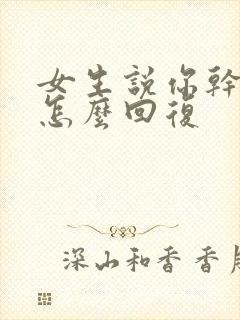 女生説你幹
怎麼回復
深山和香香